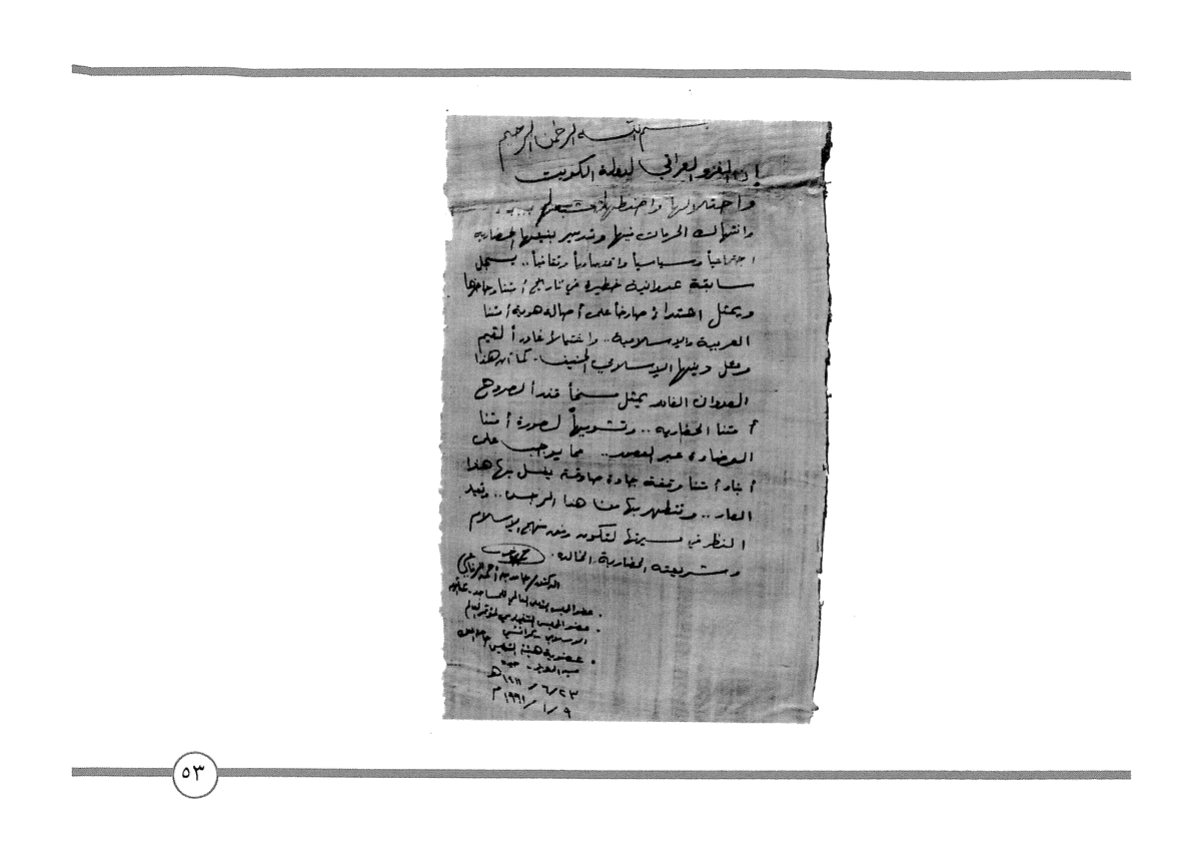 بسم الله الرحمن الرحيم
إن الغزو العراقي لدولة الكويت
واحتلالها واضطهاد شعبها ..
وانتهاك الحرمات فيها وتدمير بنيتها الحضارية
اجتماعياً وسياسياً واقتصادياً وثقافياً .. يسجل
سابقة عدوانية خطيرة في تاريخ أمتنا وحاضرها
ويمثل اعتداءً صارخاً على أصالة هوية أمتنا
العربية والإسلامية .. لقيم
ومثل دينها الإسلامي الحنيف . كما أن هذا
العدوان الغادر يمثل مسخاً قذراً لصروح
أمتنا الحضارية .. وتشويهاً لصورة أمتنا
الوضاءة عبر العصور .. مما يوجب على
أبناء أمتنا وقفة جادة صادقة يغسل بها هذا
العار .. وتتطهر بها من هذا الرجس .. وتعيد
النظر في مسيرتها لتكون وفق منهج الإسلام
وشريعته الحضارية الخالدة .
الدكتور / حامد أحمد الرفاعي
. عضو المجلس الأعلى العالمي للمساجد .
. عضو المجلس التنفيذي لمؤتمر العالم
الإسلامي - كراتشي
. عضو هيئة التدريس جامعة الملك
عبد العزيز - جدة
٢٣ / ٦ / ١٤١١ هـ
٩ / ١ / ١٩٩١ م
٥٣